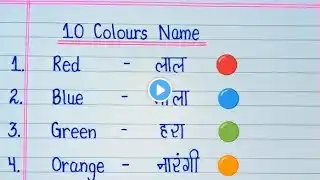 10 Colours Name
1. Red - लाल
2. Blue -
3. Green - हरा
4. Orange - नारंगी